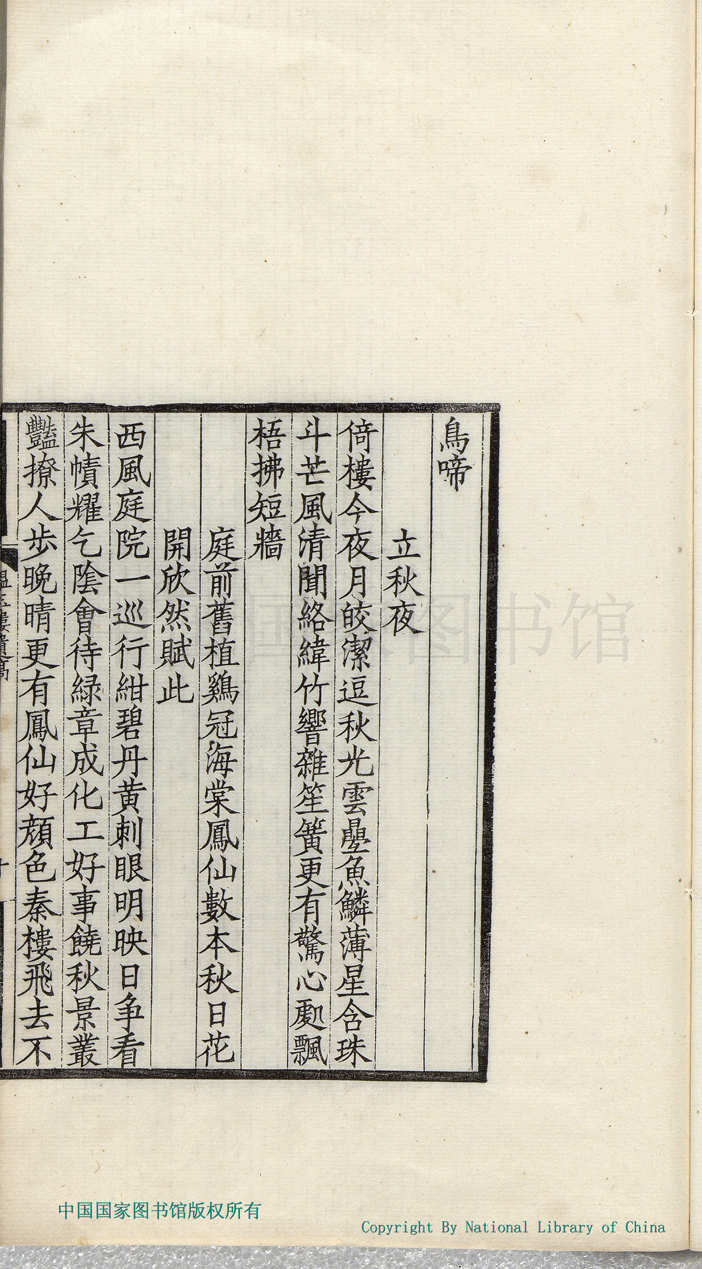 鳥啼
立秋夜
倚樓今夜月皎潔逗秋光雲疊魚鱗薄星含珠
斗芒風清聞絡緯竹響雜笙簧更有驚心處飄
梧拂短牆
庭前舊植鷄冠海棠鳳仙數本秋日花
開欣然賦此
西風庭院一巡行紺碧丹黃刺眼明映日爭看
朱幘耀乞陰會待緑章成化工好事饒秋景叢
豔撩人步晚晴更有鳳仙好顏色秦樓飛去不
国家图书馆
中国国家图书馆版权所有
Copyright By National Library of China